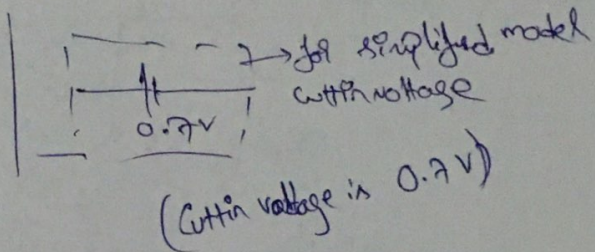 for simplified model
Cuttin voltage
0.7V
(Cuttin voltage is 0.7V)